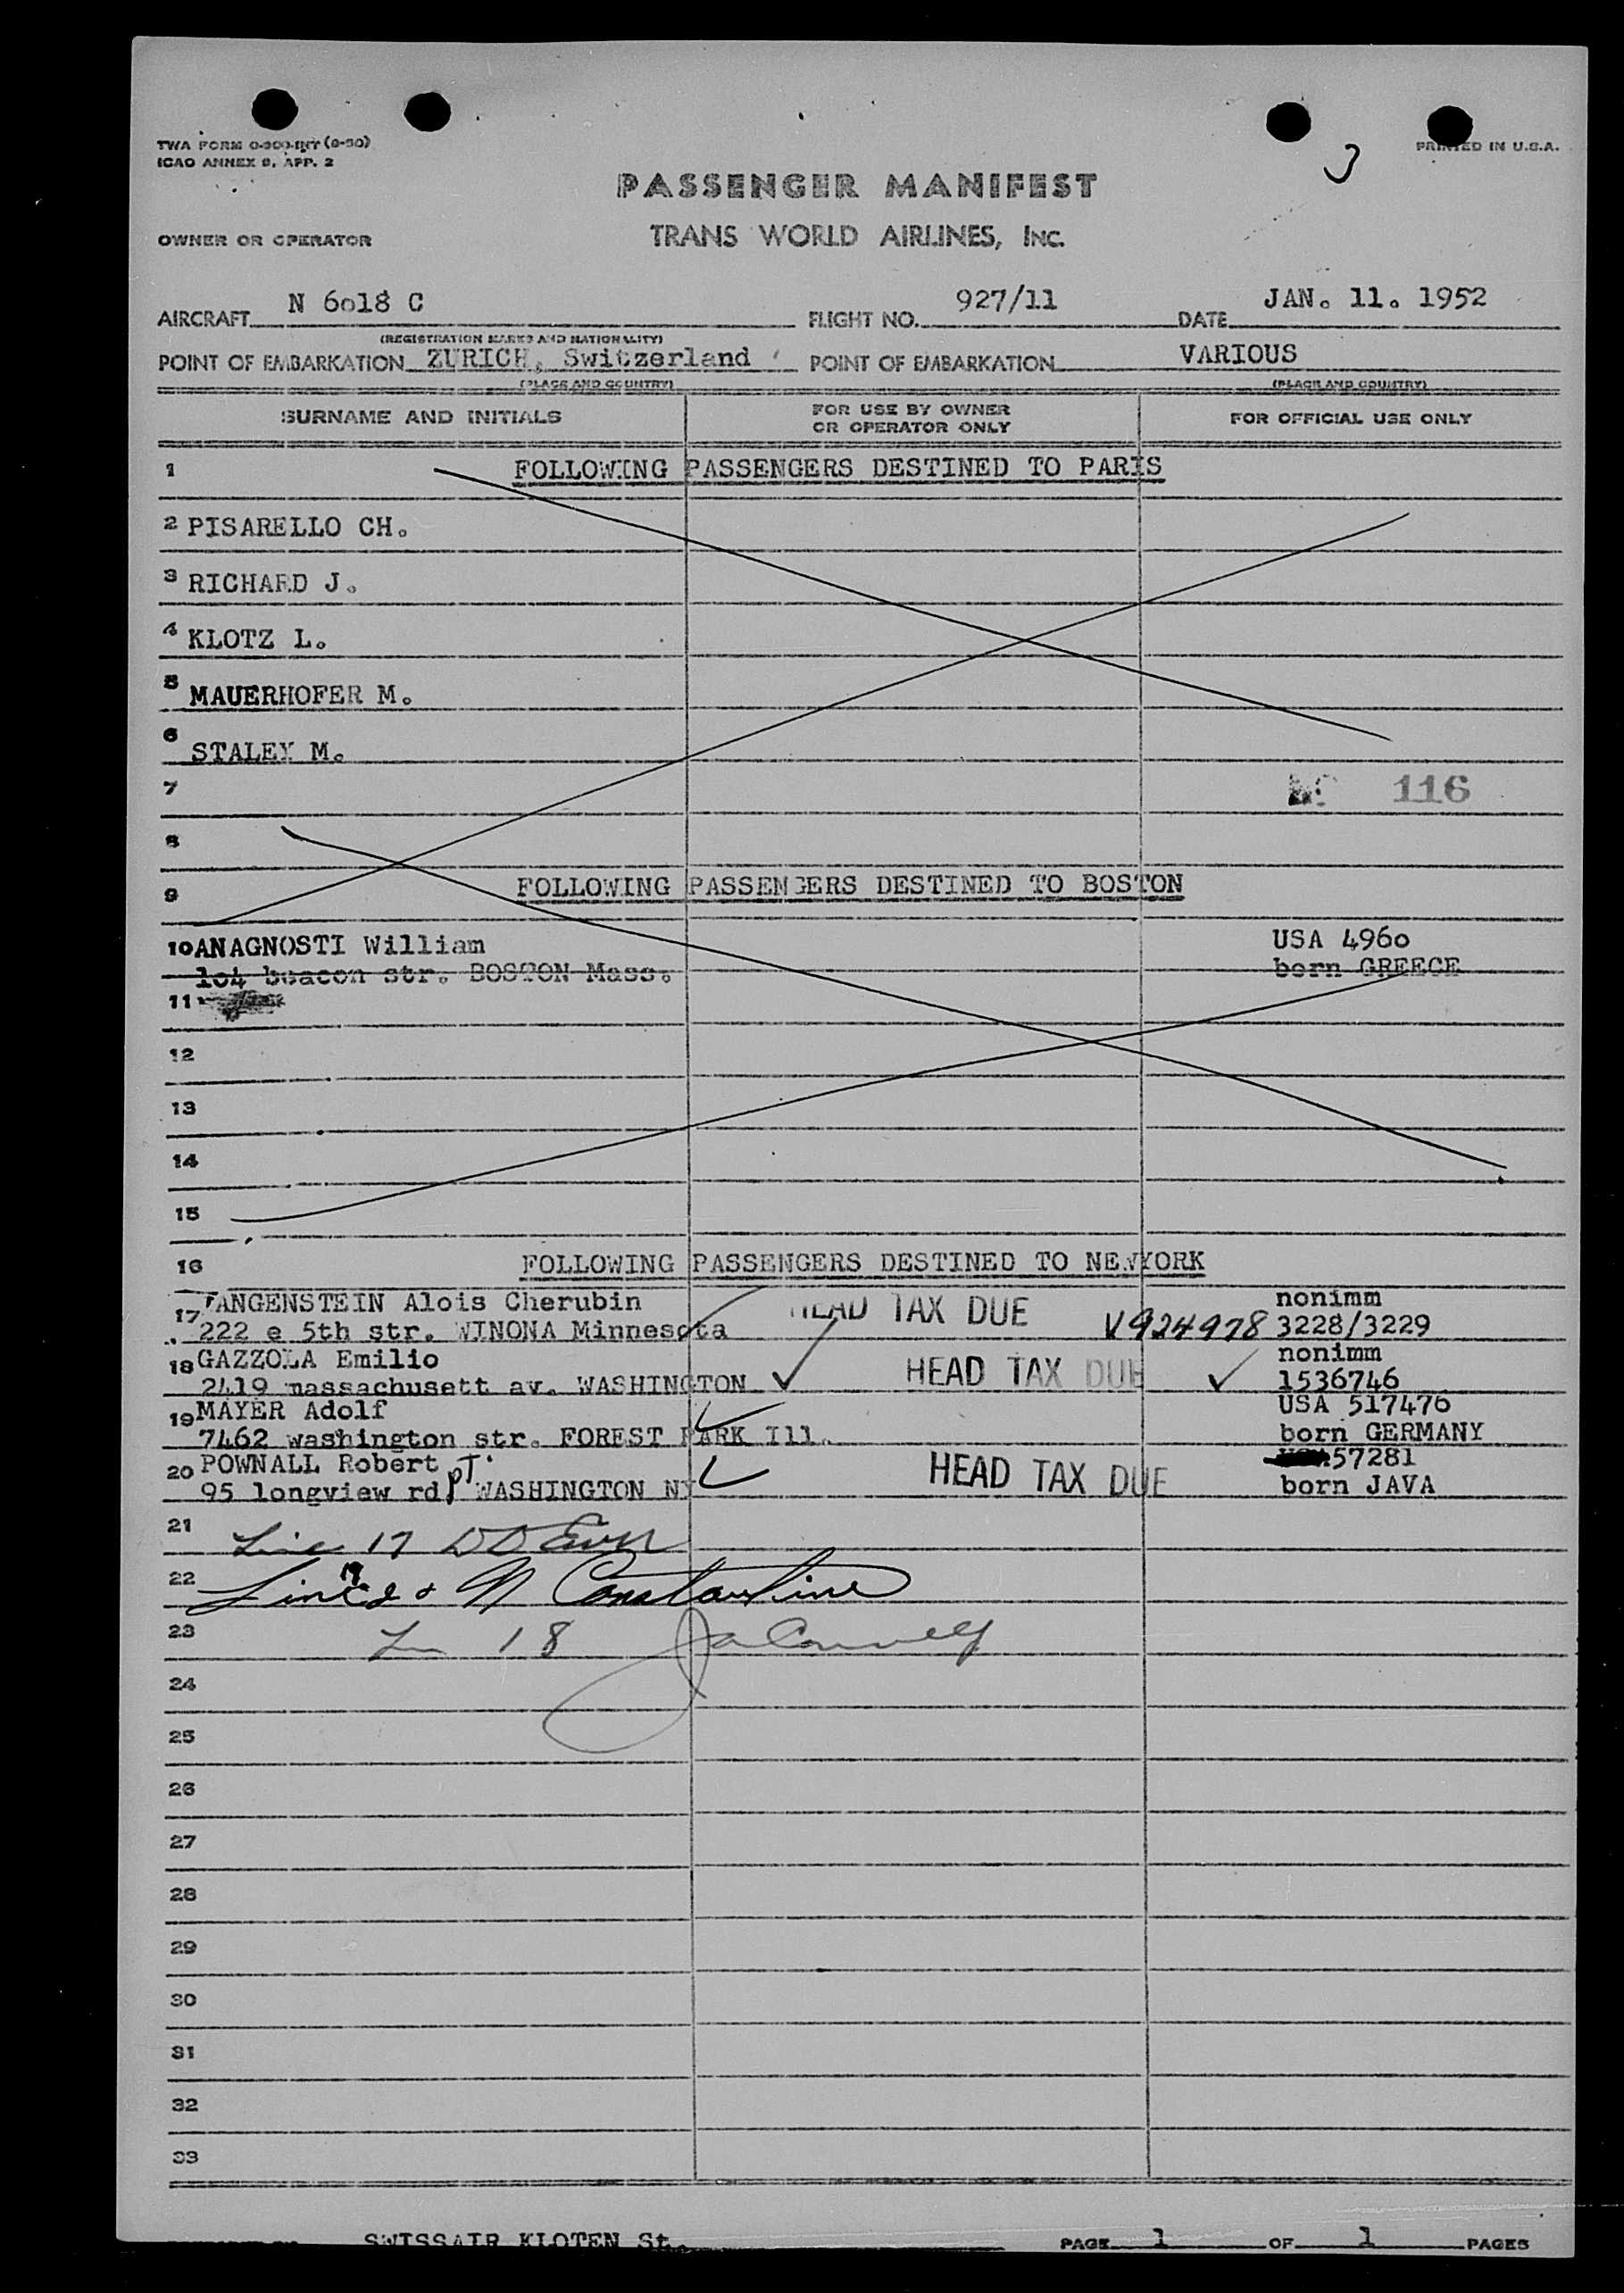 TWA FORM 0-300-INT (8-50)
ICAO ANNEX 9, APP. 2
PRINTED IN U.S.A.
3
PASSENGER MANIFEST
OWNER OR OPERATOR TRANS WORLD AIRLINES, INC.
AIRCRAFT N 6o18 C FLIGHT NO. 927/11 DATE JAN. 11. 1952
(REGISTRATION MARKS AND NATIONALITY)
POINT OF EMBARKATION ZURICH, Switzerland POINT OF EMBARKATION VARIOUS
(PLACE AND COUNTRY) (PLACE AND COUNTRY)
SURNAME AND INITIALS FOR USE BY OWNER OR OPERATOR ONLY FOR OFFICIAL USE ONLY
1 FOLLOWING PASSENGERS DESTINED TO PARIS
2 PISARELLO CH.
3 RICHARD J.
4 KLOTZ L.
5 MAUERHOFER M.
6 STALEY M.
7 116
8
9 FOLLOWING PASSENGERS DESTINED TO BOSTON
10 ANAGNOSTI William USA 496o
1o4 beacon str. BOSTON Mass. born GREECE
11
12
13
14
15
16 FOLLOWING PASSENGERS DESTINED TO NEWYORK
17 WANGENSTEIN Alois Cherubin HEAD TAX DUE nonimm
222 e 5th str. WINONA Minnesota V924978 3228/3229
18 GAZZOLA Emilio HEAD TAX DUE nonimm
2419 massachusett av. WASHINGTON 1536746
19 MAYER Adolf USA 517476
7462 washington str. FOREST PARK Ill. born GERMANY
20 POWNALL Robert HEAD TAX DUE 57281
95 longview rd, PT. WASHINGTON NY born JAVA
21 Line 17
22 Line 19 & N Constantine
23 Ln 18
24
25
26
27
28
29
30
31
32
33
SWISSAIR KLOTEN St. PAGE 1 OF 1 PAGES